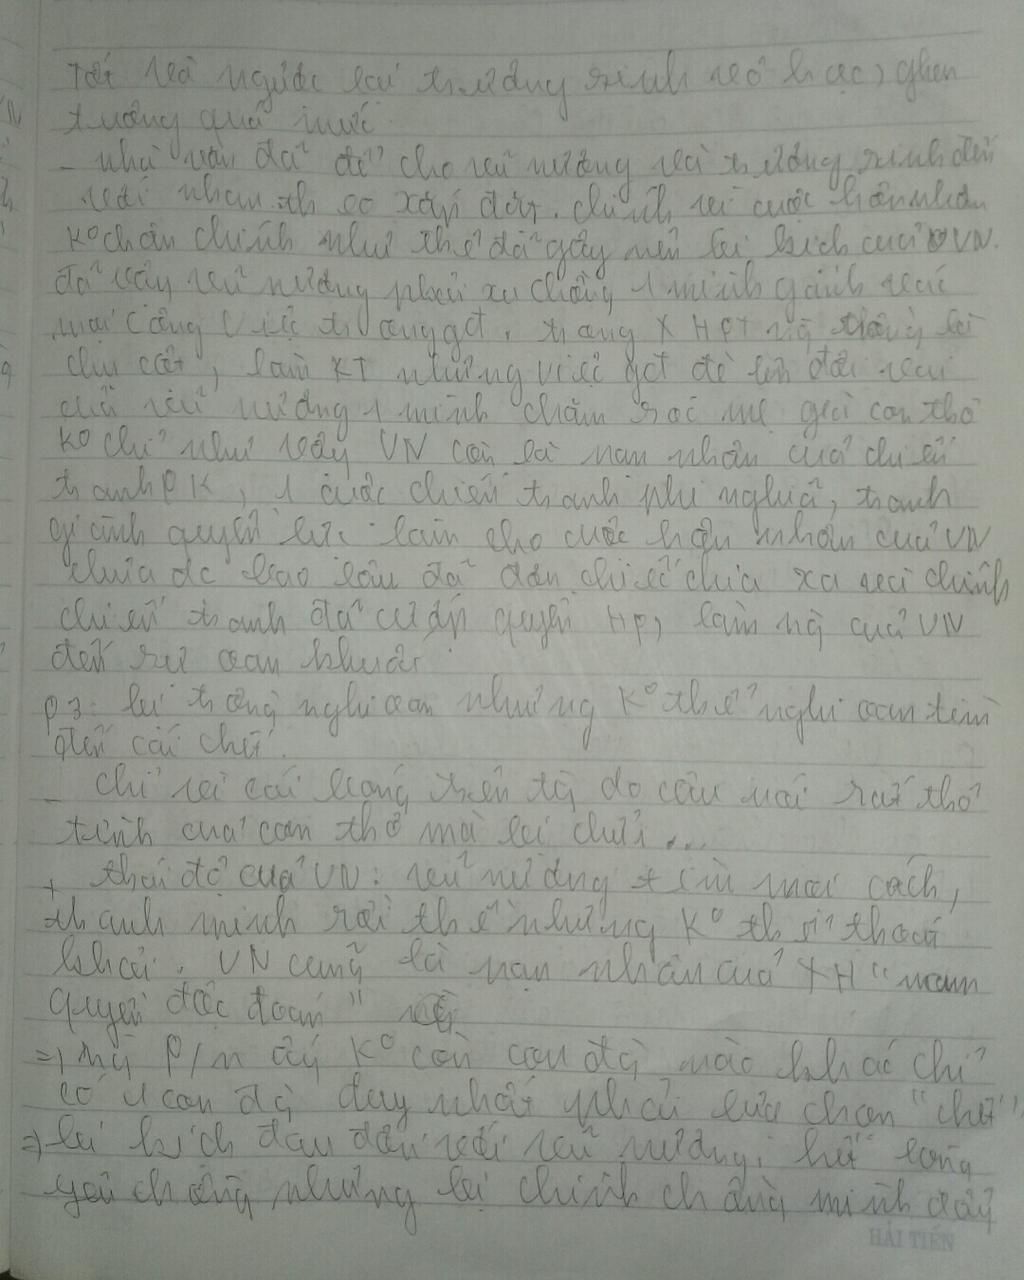 Tới và người lại trương sinh vô học, ghen
tuông quá mức
- nhà văn đã để cho vũ nương và trương sinh đến
với nhau. chính vì cuộc hôn nhân
K° chân chính như thế đã gây nên bi kịch của VN.
đã vậy vũ nương phải xa chồng 1 mình gánh vác
mọi công việc trong gđ. trong XHPK
làm KT những việc gđ đè lên đôi vai
của vũ nương 1 mình chăm sóc mẹ già con thơ
K° chỉ như vậy VN còn là nạn nhân của chiến
tranh PK, 1 cuộc chiến tranh phi nghĩa, tranh
giành quyền lực làm cho cuộc hôn nhân của VN
chưa đc bao lâu đã dẫn chia xa và chính
chiến tranh đã cướp quyền HP, làm của VN
đến sự oan khuất
P3: bị chồng nghi oan nhưng K° thể nghi oan tìm
đến cái chết.
- chỉ vì cái bóng trên do câu nói rất thơ
tình của con thơ mà bị chửi...
+ thái độ của VN: vũ nương tìm mọi cách,
thanh minh rồi thế nhưng K° thể thoát
khỏi. VN cũng là nạn nhân của XH "nam
quyền độc đoán"
=> P/n ấy K° còn con đg nào khác chỉ
có 1 con đg duy nhất phải lựa chọn "chết"
=> bi kịch đau đớn với vũ nương, hết lòng
yêu chồng nhưng lại chính chồng mình đẩy
HẢI TIẾN